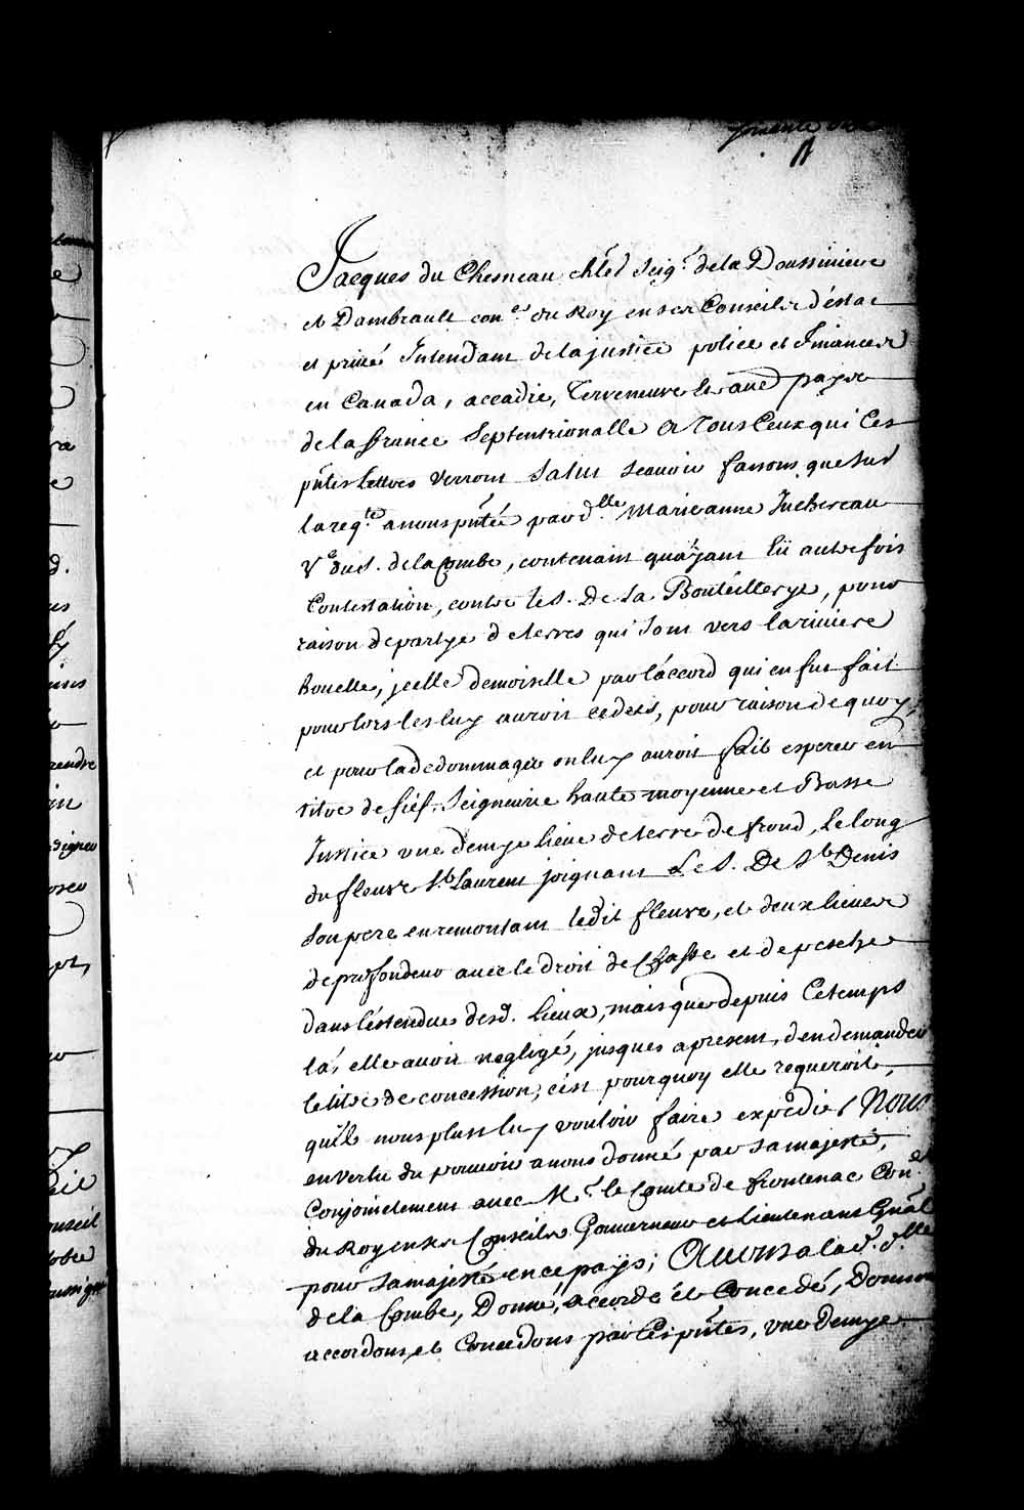 Jacques du Chesneau chler seigr. de la Doussiniere
et Dambrault coner. du Roy en ses Conseils d'éstat
et privé Intendant de la justice police et finances
en Canada, accadie, Terreneuve et aued pays
de la france septentrionalle A Tous Ceux qui Ces
pñtes Lettres verront Salut scavoir faisons que sur
la reqte. a nous pñtée par dlle. Marie anne Juchereau
Ve du s. de la Combe, contenant quáyant Eü autrefois
Contestation, contre le s. De la Boutéillerye, pour
raison de partye de terres qui sont vers la riviere
houelle, jcelle demoiselle par l'áccord qui en fut fait
pour lors les luy auroit cedées, pour raison de quoy,
et pour la dedommager on luy auroit fait esperer en
titre de fief, Seigneurie haute moyenne et Basse
Justice vne demye lieue de terre de frond, le long
du fleuve St. Laurent joignant Le S. De St. Denis
son pere en remontant ledit fleuve, et deux lieues
de profondeur avec le droit de Chasse et de pesche
dans l'éstendue desd. lieux, mais que depuis Ce temps
là, elle avoit negligé, jusques a present, den demander
le titre de concession, c'est pourquoy elle requeroit,
qu'il nous plust luy vouloir faire expedier Nous
en vertu du pouvoir a nous donné par sa majesté,
Conjoinctement avec Mr. le Comte de frontenac Coner
du Roy en ses Conseils Gouverneur et Lieutenant Gñal
pour sa majesté en ce pays; Avons a lad. dlle
de la Combe, Donné, accordé et Concedé, Donnons
accordons et Concedons par Ces pñtes, vne demye